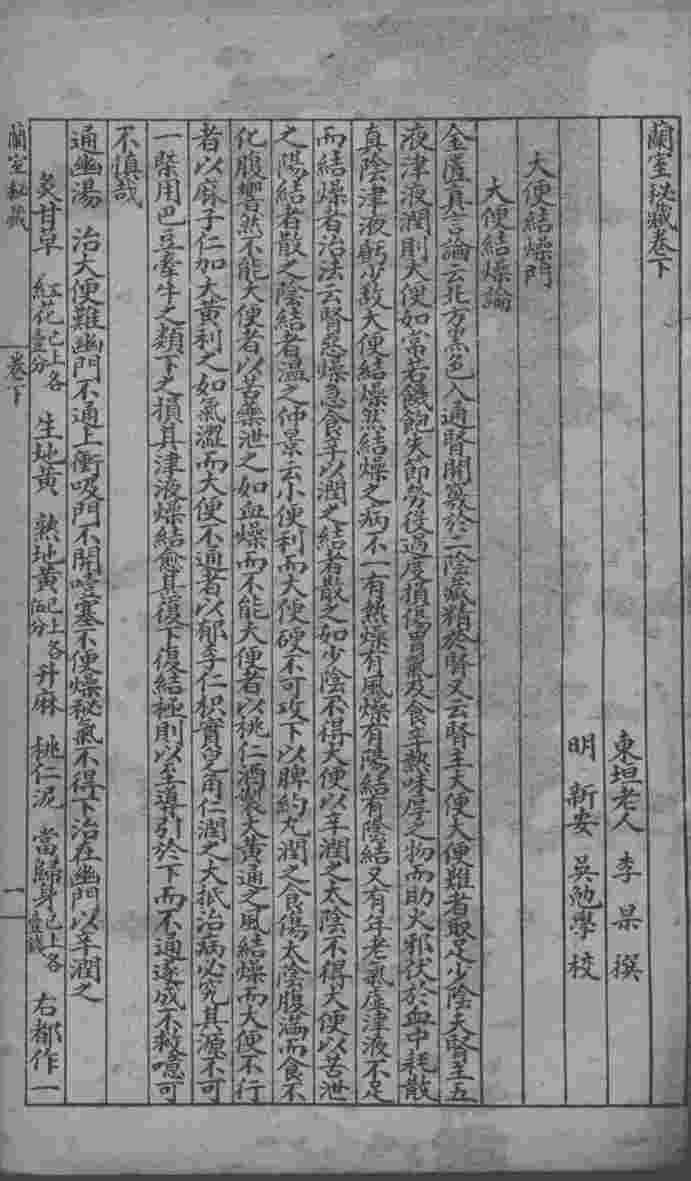 蘭室秘藏卷下
東垣老人 李杲 撰
明 新安 吳勉學 校
大便結燥門
大便結燥論
金匱真言論云北方黑色入通腎開竅於二陰藏精於腎又云腎主大便大便難者取足少陰夫腎主五
液津液潤則大便如常若饑飽失節勞役過度損傷胃氣及食辛熱味厚之物而助火邪伏於血中耗散
真陰津液虧少故大便結燥然結燥之病不一有熱燥有風燥有陽結有陰結又有年老氣虛津液不足
而結燥者治法云腎惡燥急食辛以潤之結者散之如少陰不得大便以辛潤之太陰不得大便以苦泄
之陽結者散之陰結者溫之仲景云小便利而大便硬不可攻下以脾約丸潤之食傷太陰腹滿而食不
化腹響然不能大便者以苦藥泄之如血燥而不能大便者以桃仁酒製大黃通之風結燥而大便不行
者以麻子仁加大黃利之如氣澀而大便不通者以郁李仁枳實皂角仁潤之大抵治病必究其源不可
一槩用巴豆牽牛之類下之損其津液燥結愈甚復下復結極則以至導引於下而不通遂成不救噫可
不慎哉
通幽湯 治大便難幽門不通上衝吸門不開噎塞不便燥秘氣不得下治在幽門以辛潤之
炙甘草 紅花已上各壹分 生地黃 熟地黃已上各伍分 升麻 桃仁泥 當歸身已上各壹錢 右都作一
蘭室秘藏 卷下 一